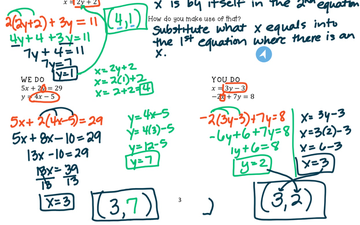 x = 2y + 2
x is by itself in the 2nd equation
2(2y+2) + 3y = 11
(4,1)
How do you make use of that?
4y + 4 + 3y = 11
7y + 4 = 11
7y = 7
y = 1
x = 2y + 2
x = 2(1) + 2
x = 2+2 = 4
Substitute what x equals into
the 1st equation where there is an
x.
WE DO
5x + 2y = 29
y = 4x − 5
5x + 2(4x−5) = 29
5x + 8x − 10 = 29
13x − 10 = 29
13x = 39
13 13
x = 3
y = 4x−5
y = 4(3)−5
y = 12−5
y = 7
(3,7)
YOU DO
x = 3y − 3
−2x + 7y = 8
−2(3y−3) + 7y = 8
−6y + 6 + 7y = 8
1y + 6 = 8
y = 2
x = 3y−3
x = 3(2)−3
x = 6−3
x = 3
(3,2)
3